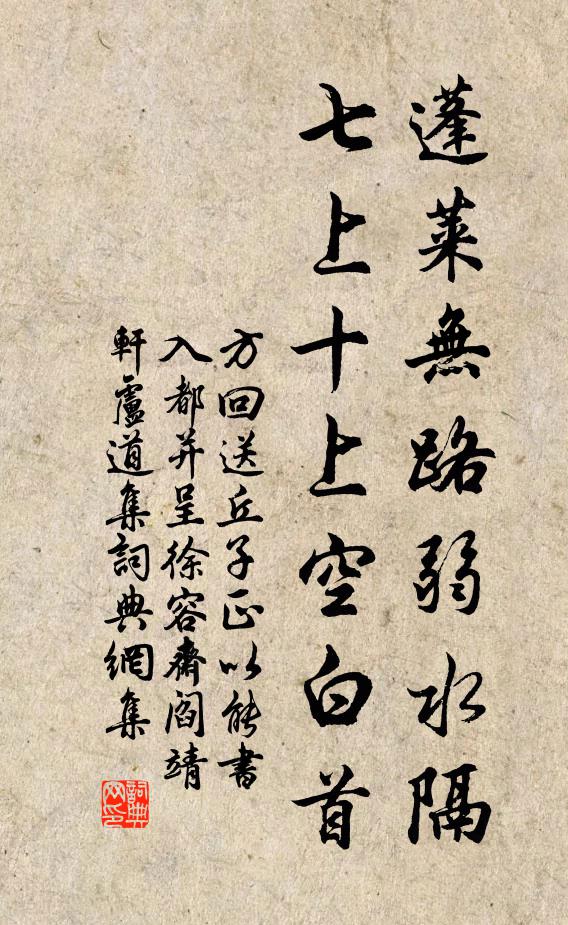 蓬萊無路弱水隔
七上十上空白首
方回送丘子正以能書
入都并呈徐容齋閻靖
軒盧道集詞典網集
詞典网印